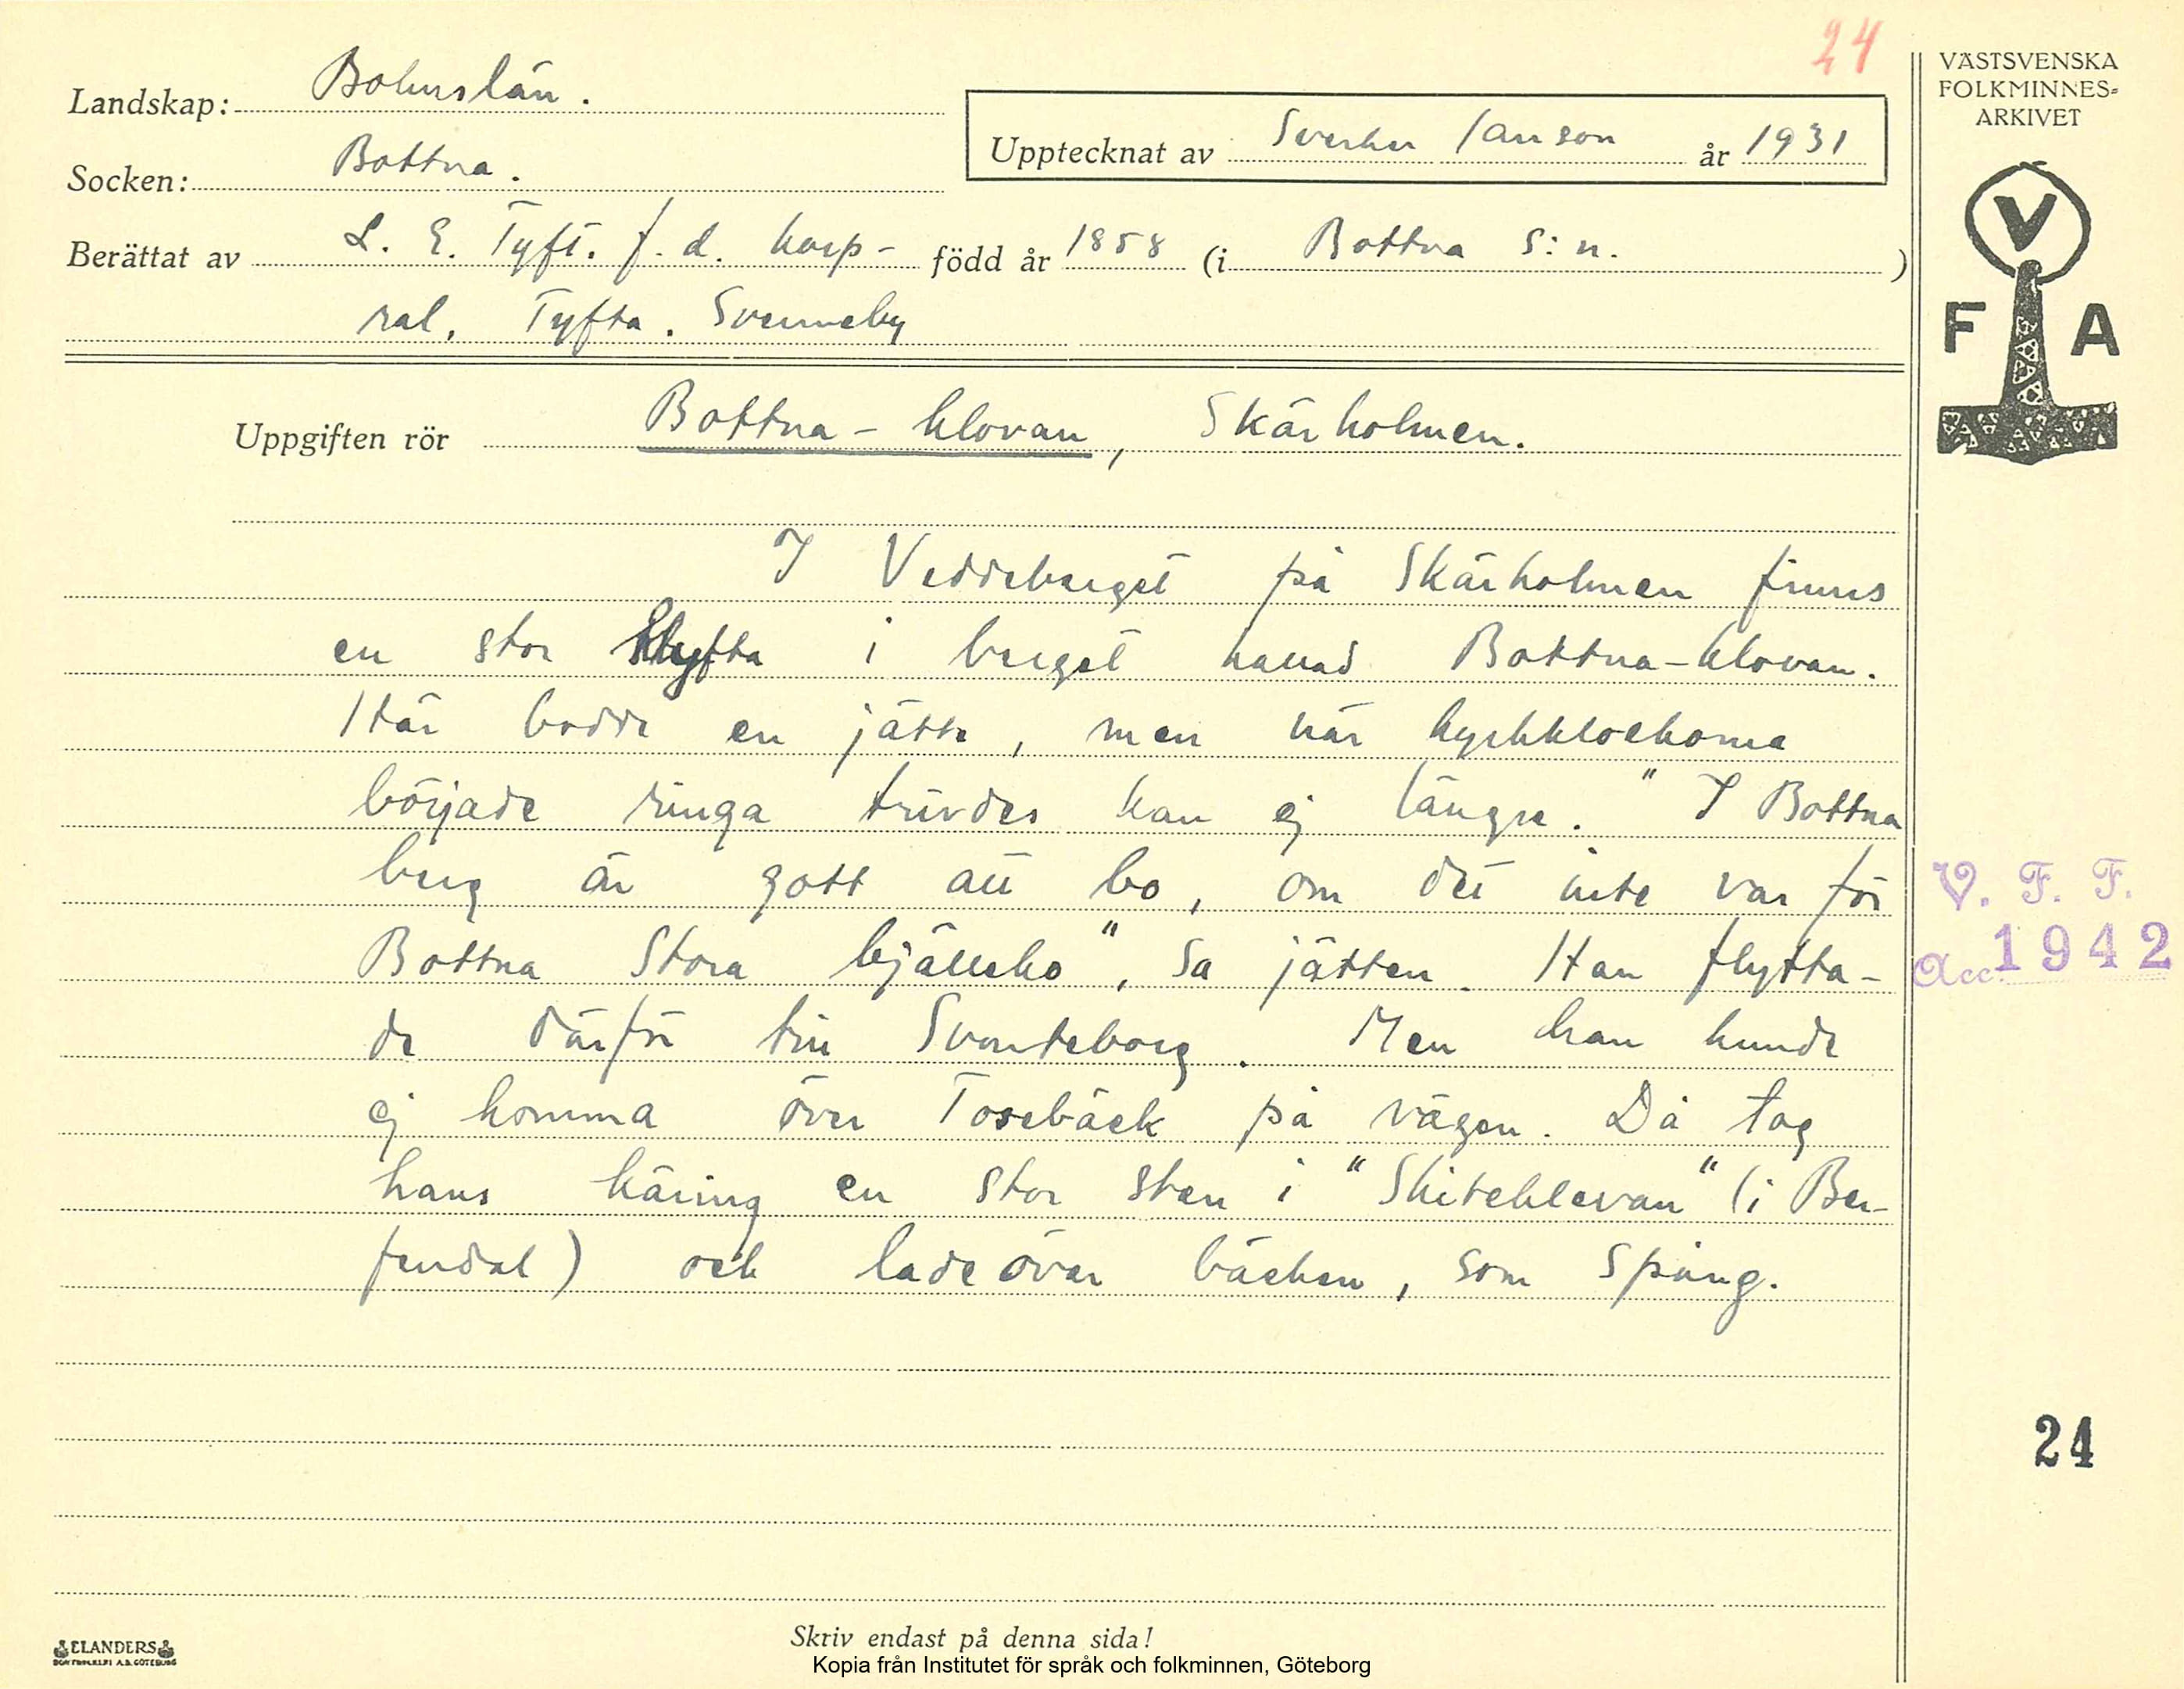 24
Landskap: Bohuslän.
Socken: Bottna.
Upptecknat av Sverker Janson år 1931
Berättat av L. E. Tyft. f. d. korp- född år 1858 (i Bottna s:n. )
ral, Tyfta. Svenneby
VÄSTSVENSKA
FOLKMINNES-
ARKIVET
V
F A
Uppgiften rör Bottna-klovan, Skärholmen.
I Veddeberget på Skärholmen finns
en stor klyfta i berget kallad Bottna-klovan.
Här bodde en jätte, men när kyrkklockorna
började ringa trivdes han ej längre. "I Bottna
berg är gott att bo, om det inte var för
Bottna Stora bjälleko", sa jätten. Han flytta-
de därför till Svarteborg. Men han kunde
ej komma över Tosebäck på vägen. Då tog
hans käring en stor sten i "Skiteklevan" (i Ber-
fendal) och lade över bäcken, som spång.
V. F. F.
Acc. 1942
24
Skriv endast på denna sida!
ELANDERS
BOKTRYCKERI A.B. GÖTEBORG
Kopia från Institutet för språk och folkminnen, Göteborg